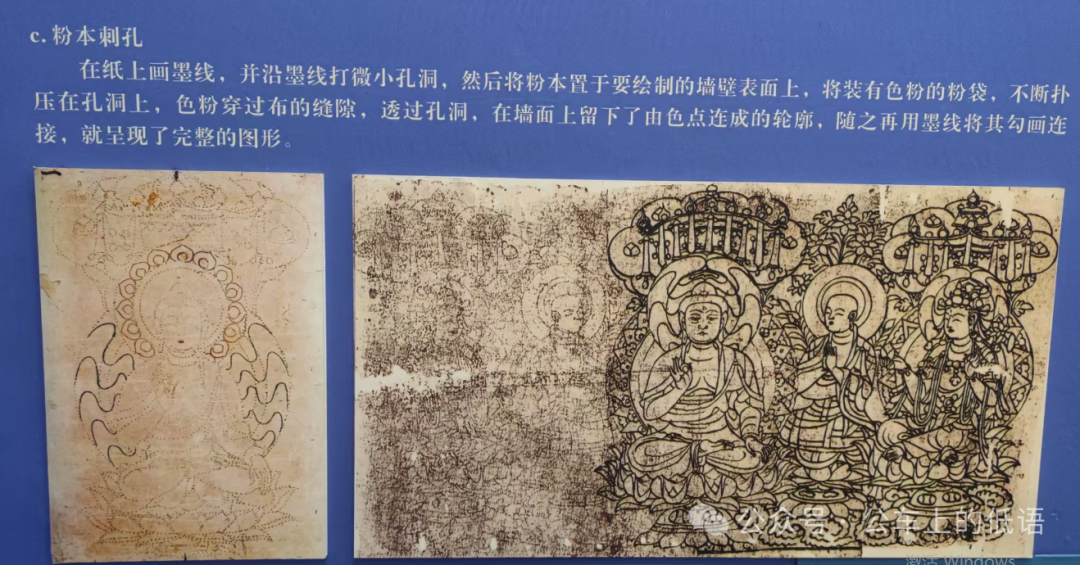 c. 粉本刺孔
在纸上画墨线，并沿墨线打微小孔洞，然后将粉本置于要绘制的墙壁表面上，将装有色粉的粉袋，不断扑
压在孔洞上，色粉穿过布的缝隙，透过孔洞，在墙面上留下了由色点连成的轮廓，随之再用墨线将其勾画连
接，就呈现了完整的图形。
公众号 · 公车上的低语
激活 Windows